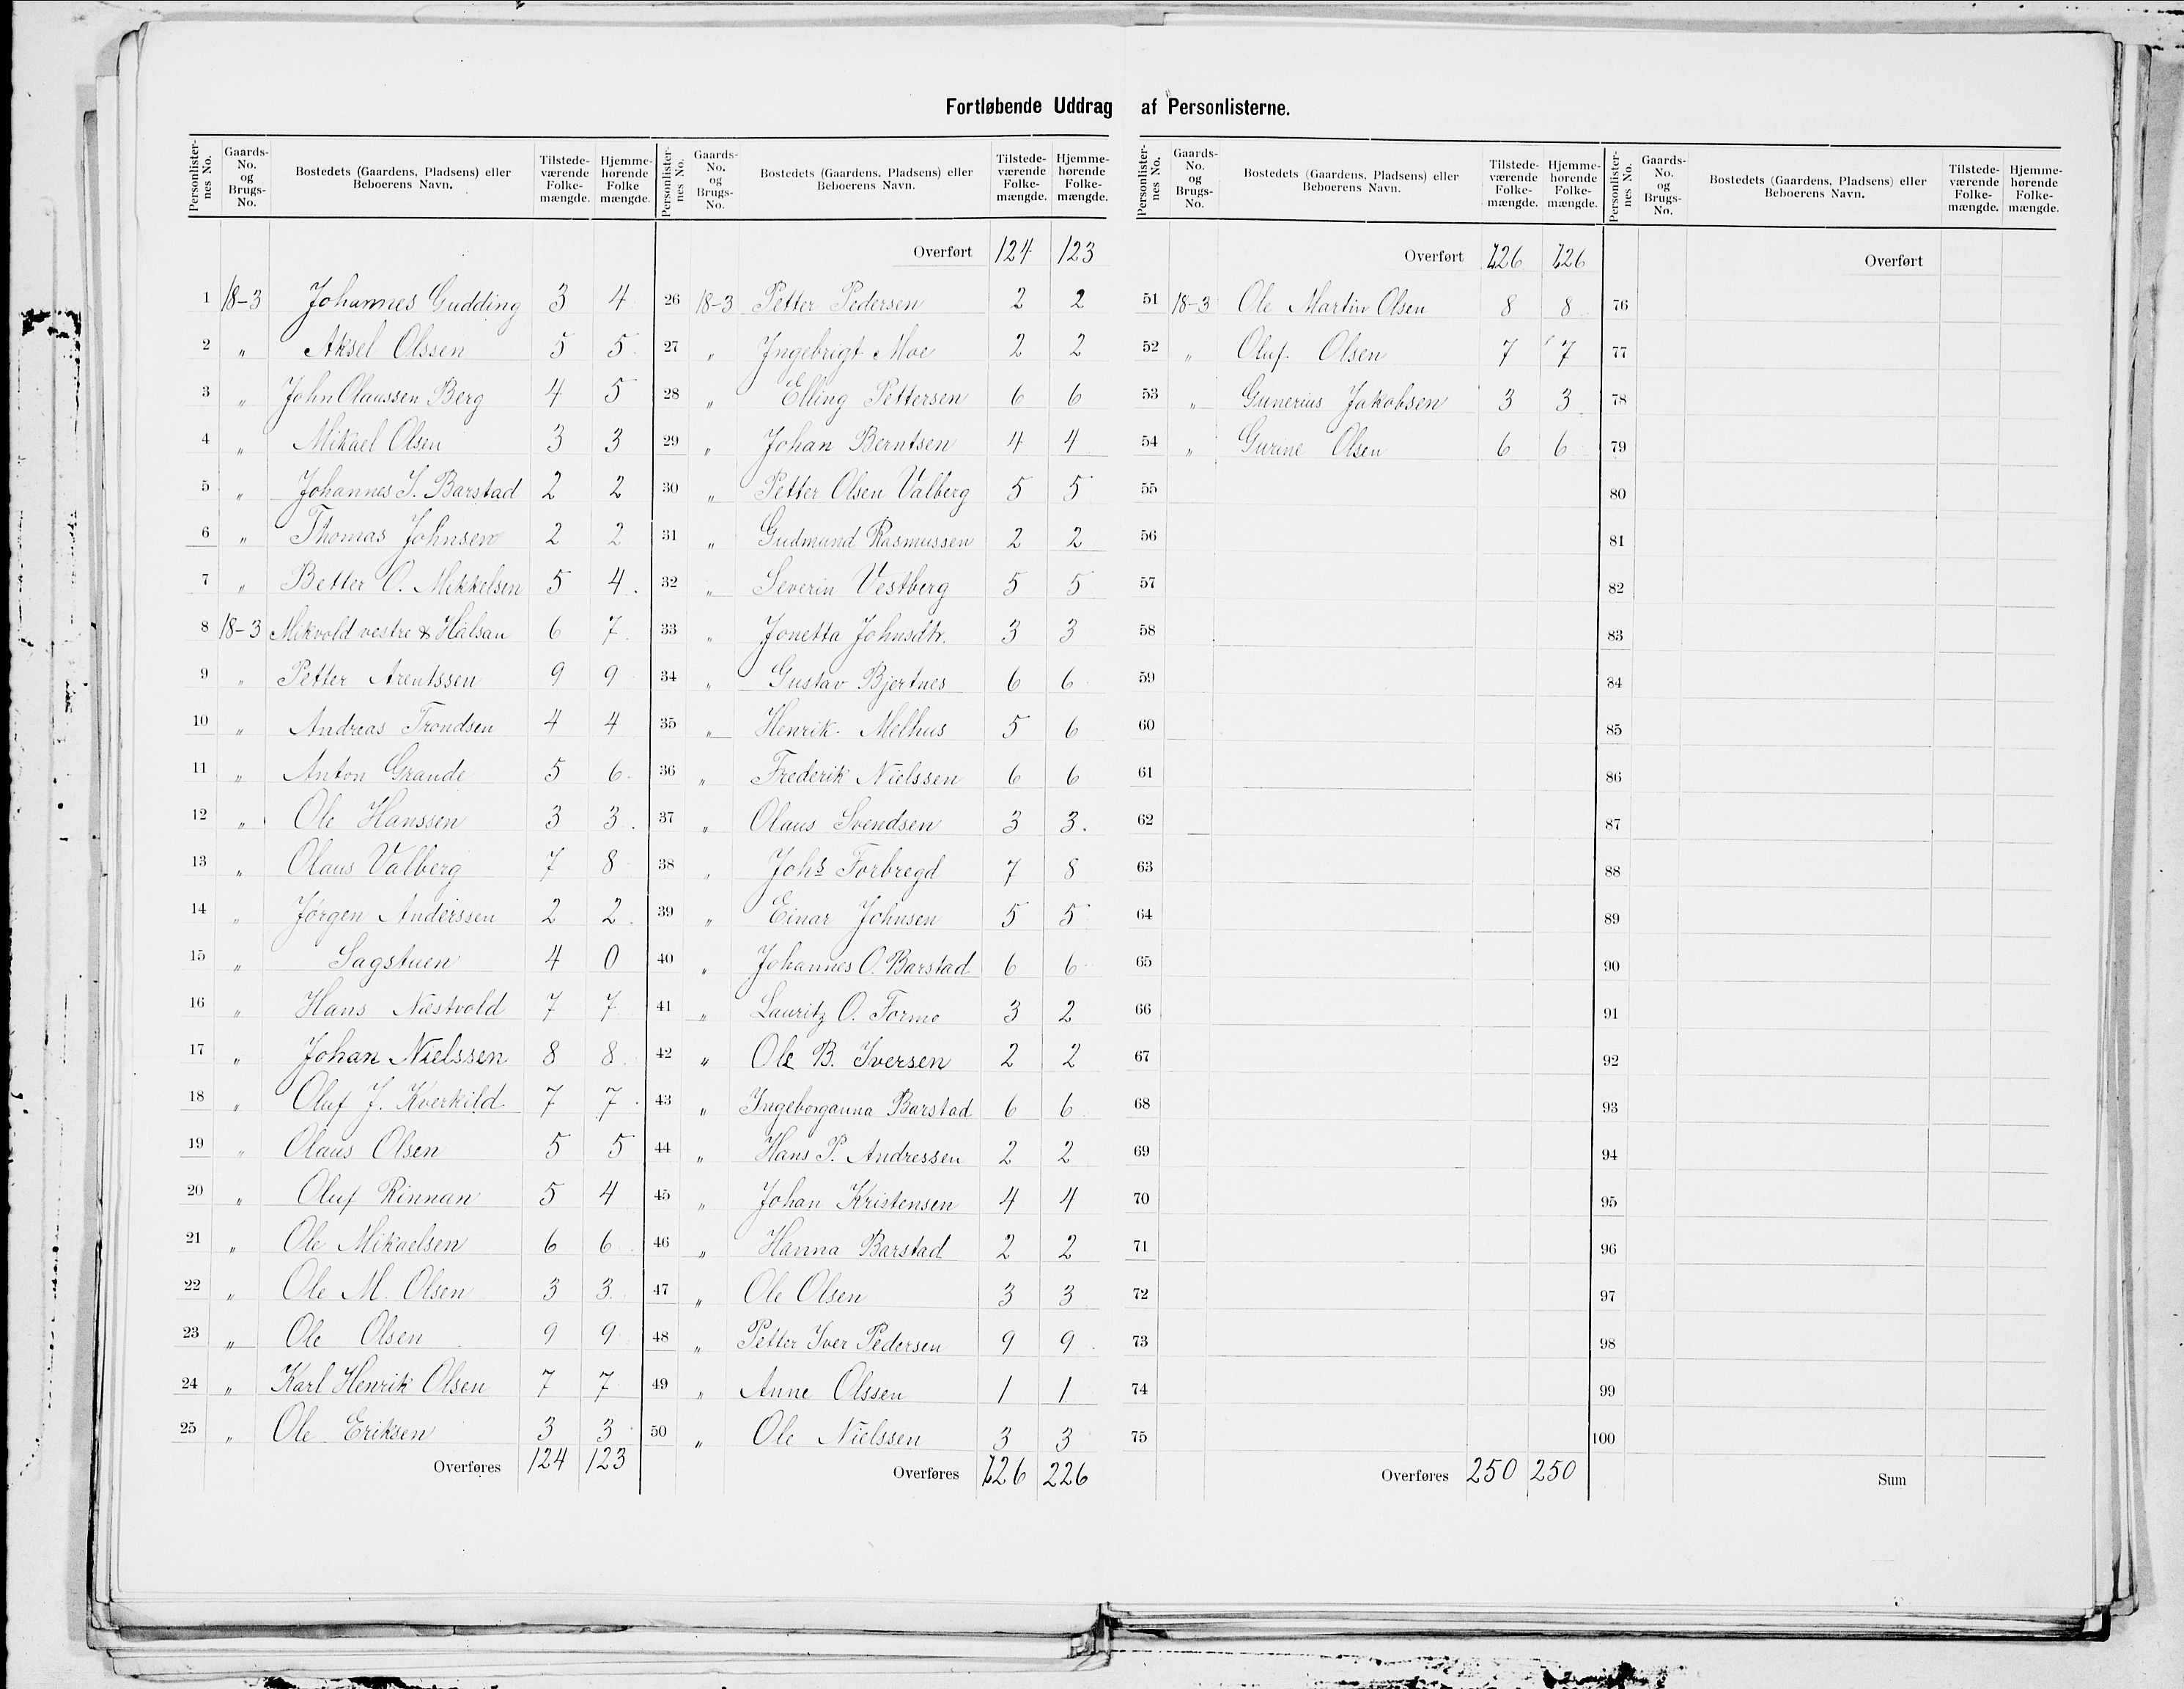 Fortløbende Uddrag af Personlisterne.
Personlisternes No. Gaards-No. og Brugs-No. Bostedets (Gaardens, Pladsens) eller Beboerens Navn. Tilstedeværende Folkemængde. Hjemmehørende Folke mængde.
1 18-3 Johannes Gudding 3 4
2 „ Aksel Olssen 5 5
3 „ John Olaussen Berg 4 5
4 „ Mikael Olsen 3 3
5 „ Johannes J. Barstad 2 2
6 „ Thomas Johnsen 2 2
7 „ Better O. Mikkelsen 5 4.
8 18-3 Mikvold vestre & Hålsau 6 7.
9 „ Petter Arentssen 9 9
10 „ Andreas Trondsen 4 4
11 „ Anton Grande 5 6.
12 „ Ole Hanssen 3 3.
13 „ Olaus Valberg 7 8
14 „ Jørgen Anderssen 2 2.
15 „ Sagstuen 4 0
16 „ Hans Næstvold 7 7
17 „ Johan Nielssen 8 8
18 „ Oluf J. Kverkild 7 7.
19 „ Olaus Olsen 5 5
20 „ Oluf Rinnan 5 4
21 „ Ole Mikaelsen 6 6
22 „ Ole M. Olsen 3 3
23 „ Ole Olsen 9 9
24 „ Karl Henrik Olsen 7 7
25 „ Ole Eriksen 3 3
Overføres 124 123
Personlisternes No. Gaards-No. og Brugs-No. Bostedets (Gaardens, Pladsens) eller Beboerens Navn. Tilstedeværende Folkemængde. Hjemmehørende Folkemængde.
Overført 124 123
26 18-3 Petter Pedersen 2 2
27 „ Ingebrigt Moe 2 2
28 „ Elling Pettersen 6 6
29 „ Johan Berntsen 4 4
30 „ Petter Olsen Valberg 5 5
31 „ Gudmund Rasmussen 2 2
32 „ Severin Vestberg 5 5
33 „ Jonetta Johnsdtr. 3 3
34 „ Gustav Bjertnes 6 6
35 „ Henrik Melhus 5 6
36 „ Frederik Nielssen 6 6
37 „ Olaus Svendsen 3 3.
38 „ Johs Forbregd 7 8
39 „ Einar Johnsen 5 5
40 „ Johannes O. Barstad 6 6
41 „ Lauritz O. Formo 3 2
42 „ Ole B. Iversen 2 2
43 „ Ingeborganna Barstad 6 6
44 „ Hans P. Andressen 2 2
45 „ Johan Kristensen 4 4
46 „ Hanna Barstad 2 2
47 „ Ole Olsen 3 3
48 „ Petter Iver Pedersen 9 9
49 „ Anne Olssen 1 1
50 „ Ole Nielssen 3 3
Overføres 226 226
Personlisternes No. Gaards-No. og Brugs-No. Bostedets (Gaardens, Pladsens) eller Beboerens Navn. Tilstedeværende Folkemængde. Hjemmehørende Folkemængde.
Overført 226 226
51 18-3 Ole Martin Olsen 8 8
52 „ Oluf Olsen 7 7
53 „ Gunerius Jakobsen 3 3
54 „ Gurine Olsen 6 6
55
56
57
58
59
60
61
62
63
64
65
66
67
68
69
70
71
72
73
74
75
Overføres 250 250
Personlisternes No. Gaards-No. og Brugs-No. Bostedets (Gaardens, Pladsens) eller Beboerens Navn. Tilstedeværende Folkemængde. Hjemmehørende Folkemængde.
Overført
76
77
78
79
80
81
82
83
84
85
86
87
88
89
90
91
92
93
94
95
96
97
98
99
100
Sum